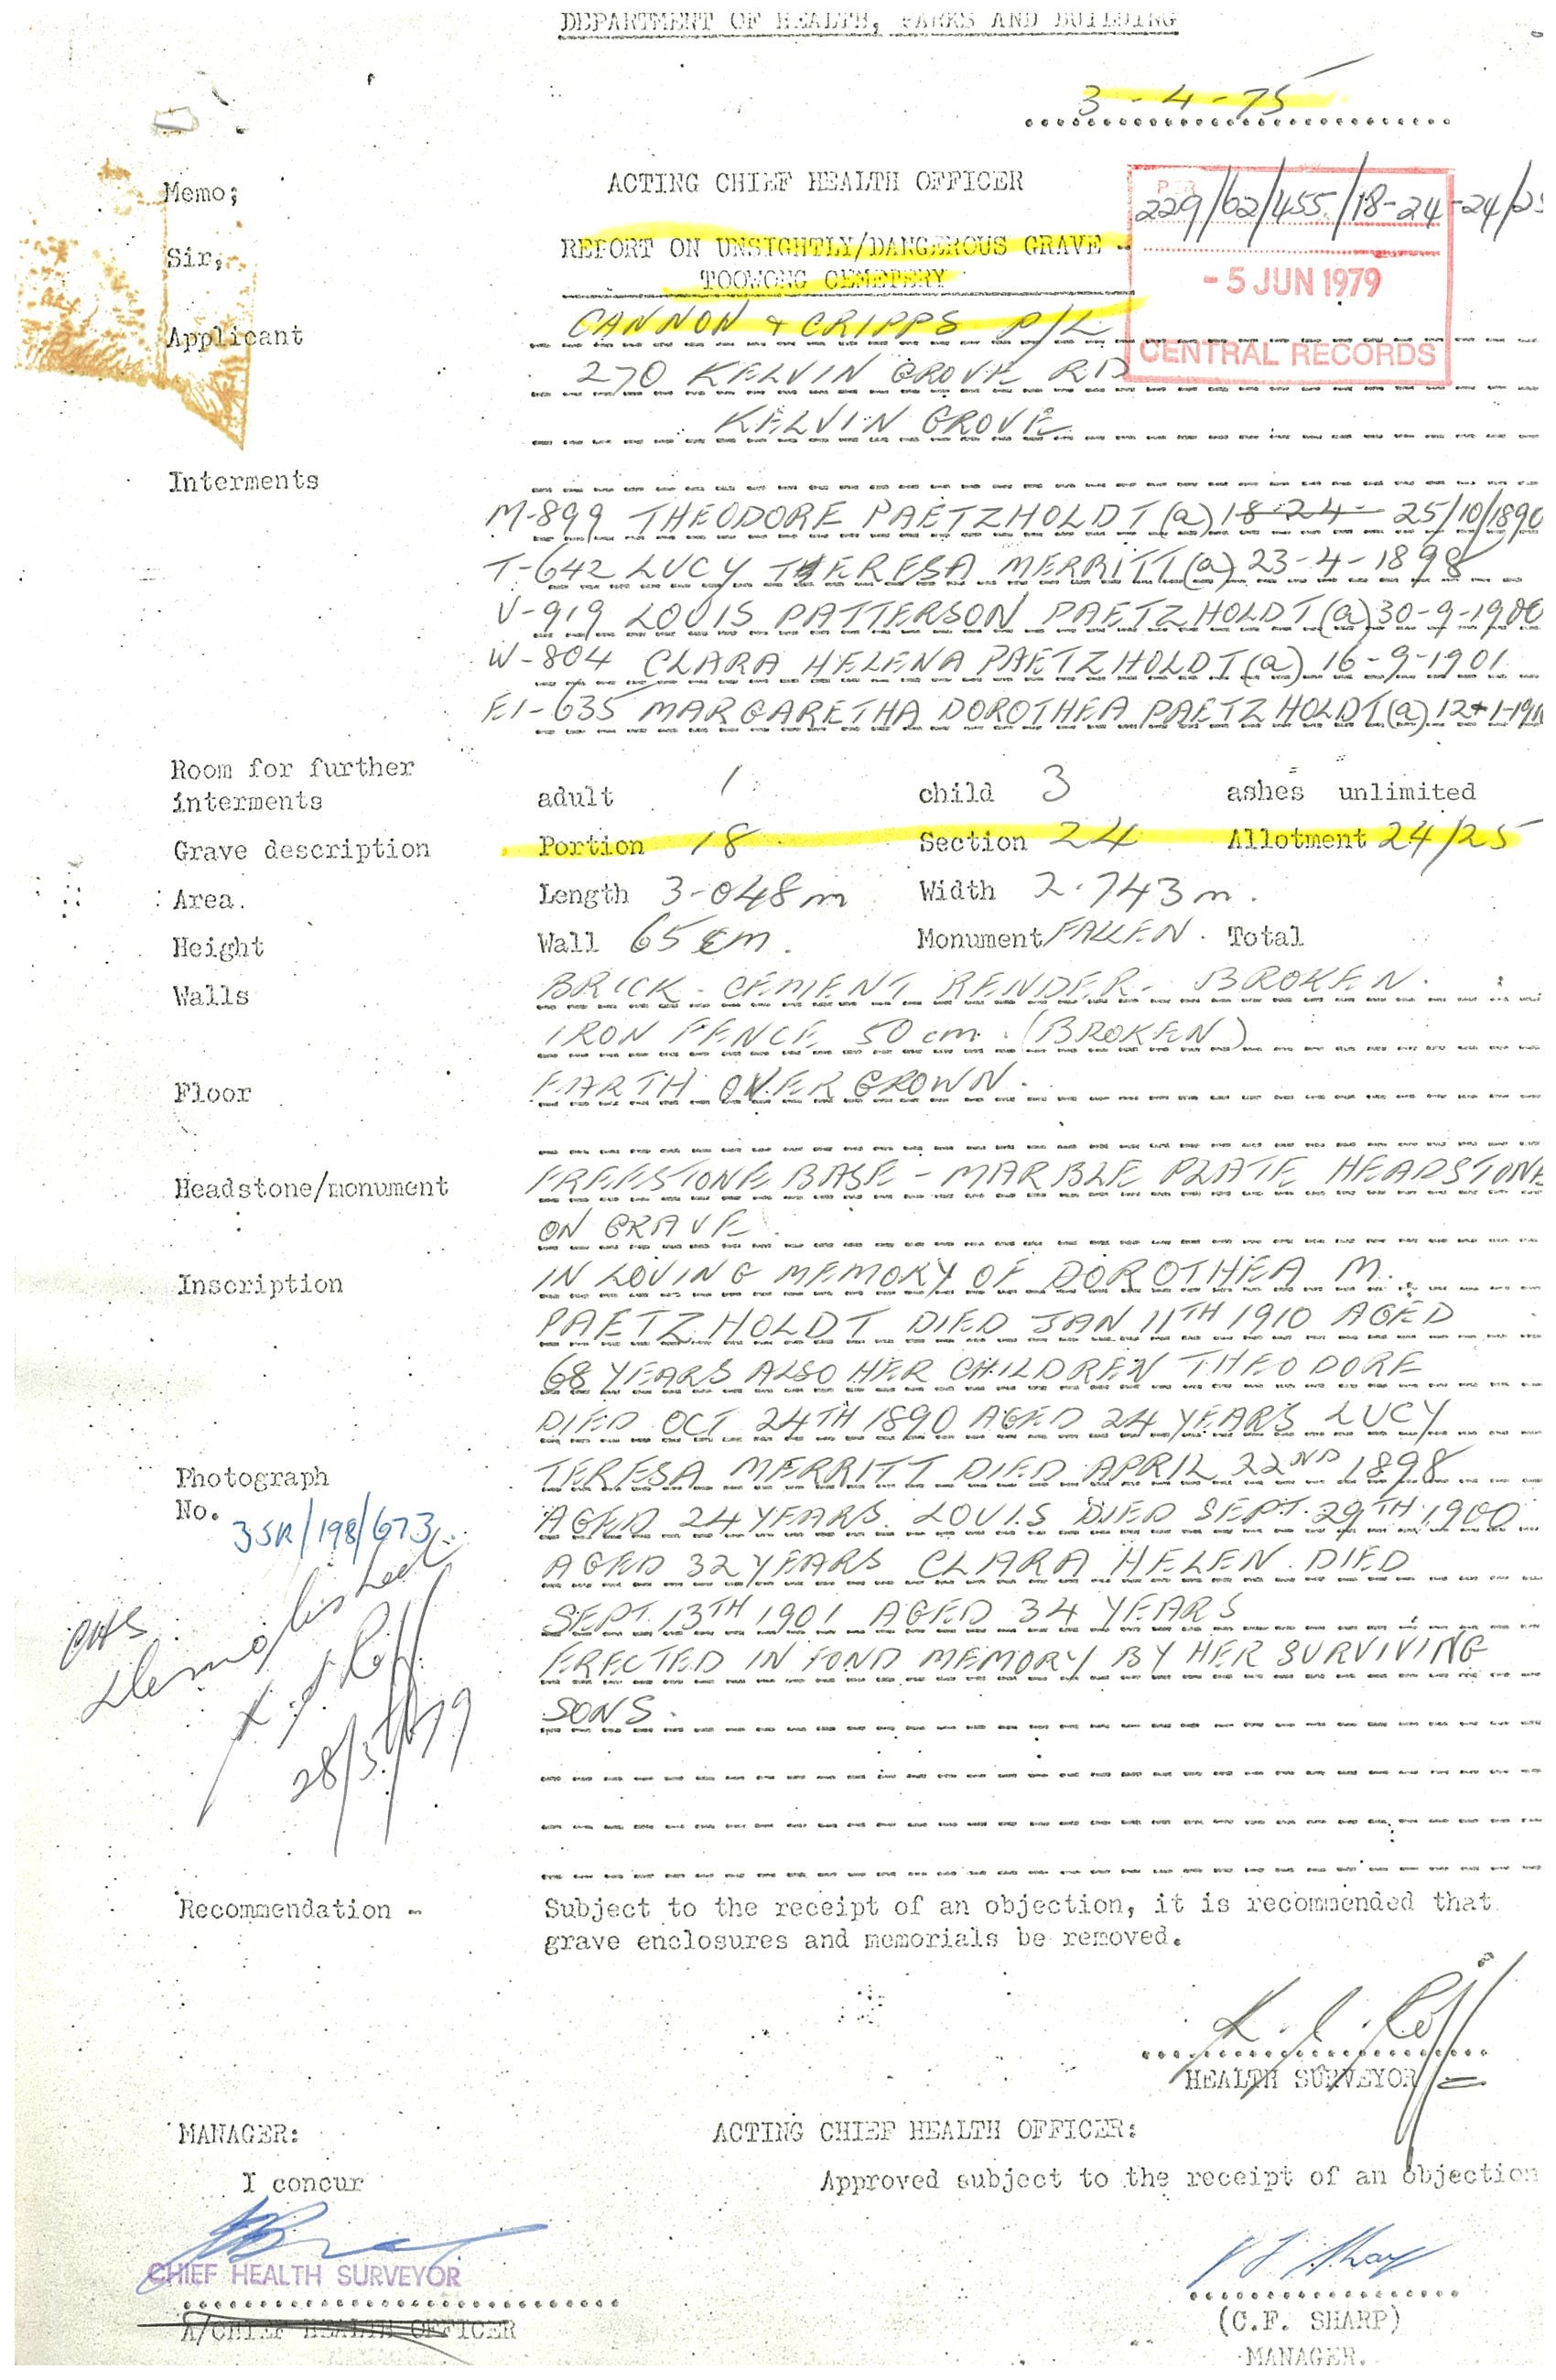 DEPARTMENT OF HEALTH, PARKS AND BUILDING
3-4-75
Memo; ACTING CHIEF HEALTH OFFICER
229/62/455/18-24-24/25
Sir, REPORT ON UNSIGHTLY/DANGEROUS GRAVE -
TOOWONG CEMETERY
- 5 JUN 1979
CENTRAL RECORDS
Applicant CANNON & CRIPPS P/L
270 KELVIN GROVE RD
KELVIN GROVE
Interments
M-899 THEODORE PAETZHOLDT (a) 18-24- 25/10/1890
T-642 LUCY THERESA MERRITT (a) 23-4-1898
V-919 LOUIS PATTERSON PAETZHOLDT (a) 30-9-1900
W-804 CLARA HELENA PAETZHOLDT (a) 16-9-1901
E1-635 MARGARETHA DOROTHEA PAETZHOLDT (a) 12-1-1910
Room for further
interments adult 1 child 3 ashes unlimited
Grave description Portion 18 Section 24 Allotment 24/25
Area. Length 3.048m Width 2.743m.
Height Wall 65cm. Monument FALLEN. Total
Walls BRICK - CEMENT RENDER - BROKEN.
IRON FENCE 50cm. (BROKEN)
Floor EARTH OVERGROWN.
Headstone/monument FREESTONE BASE - MARBLE PLATE HEADSTONE
ON GRAVE.
Inscription IN LOVING MEMORY OF DOROTHEA M.
PAETZHOLDT DIED JAN 11TH 1910 AGED
68 YEARS ALSO HER CHILDREN THEODORE
DIED OCT 24TH 1890 AGED 24 YEARS LUCY
Photograph TERESA MERRITT DIED APRIL 22ND 1898
No. 35R/198/673 AGED 24 YEARS. LOUIS DIED SEPT. 29TH 1900
AGED 32 YEARS CLARA HELEN. DIED
SEPT. 13TH 1901 AGED 34 YEARS
ERECTED IN FOND MEMORY BY HER SURVIVING
SONS.
Demolished
28/5/79
Recommendation - Subject to the receipt of an objection, it is recommended that
grave enclosures and memorials be removed.
HEALTH SURVEYOR
MANAGER: ACTING CHIEF HEALTH OFFICER:
I concur Approved subject to the receipt of an objection
CHIEF HEALTH SURVEYOR
A/CHIEF HEALTH OFFICER
(C.F. SHARP)
MANAGER.